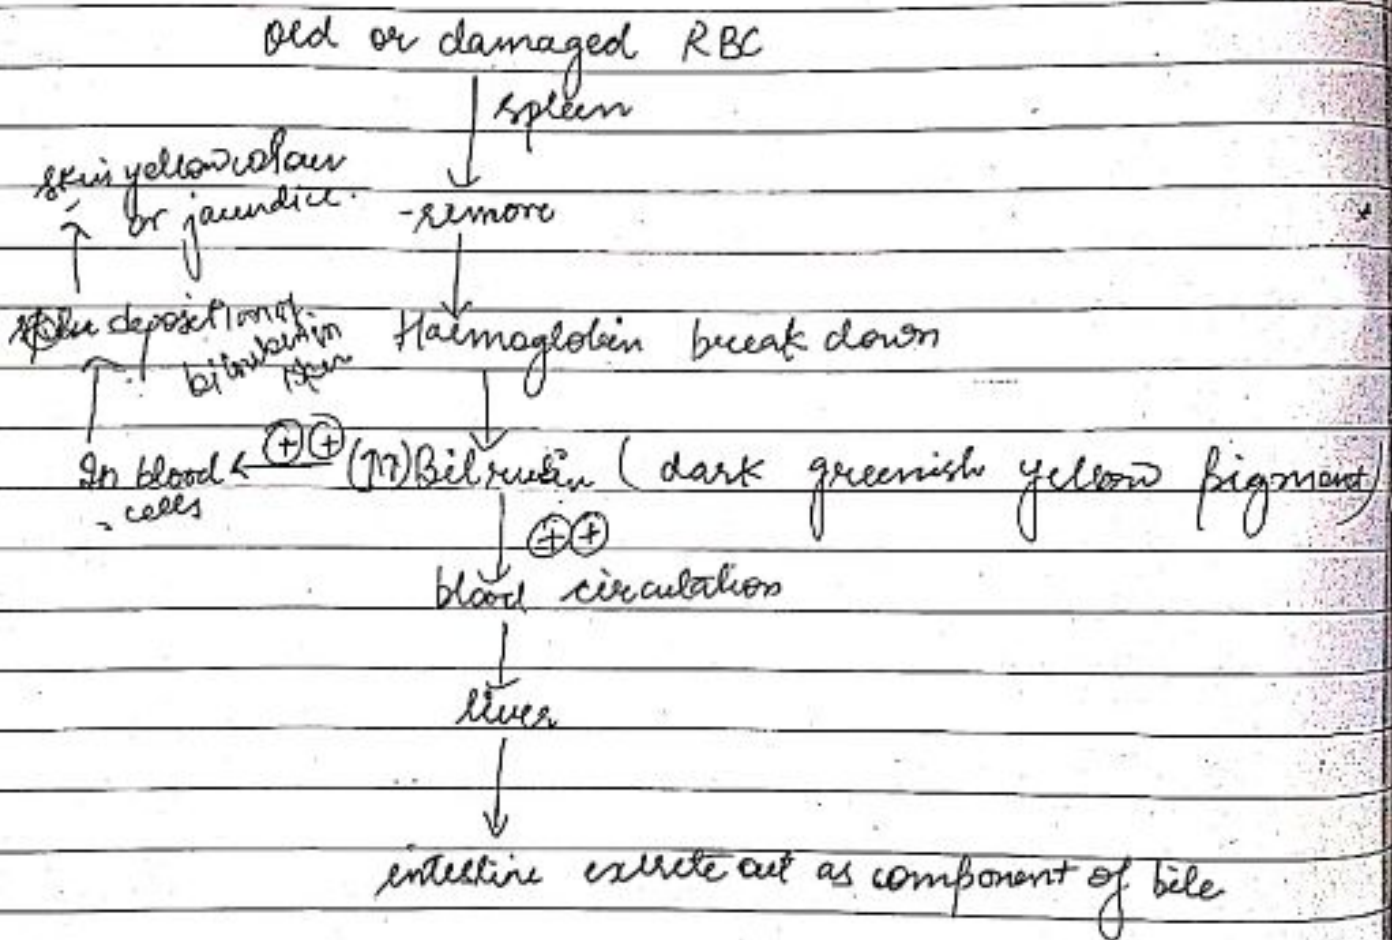 Old or damaged RBC
spleen
skin yellow colour
or jaundice.
-remove
deposition of
bilirubin in
Haemoglobin break down
In blood
cells
⊕⊕
(↑↑) Bilrubin (dark greenish yellow pigment)
⊕⊕
blood circulation
liver
intestine excrete out as component of bile